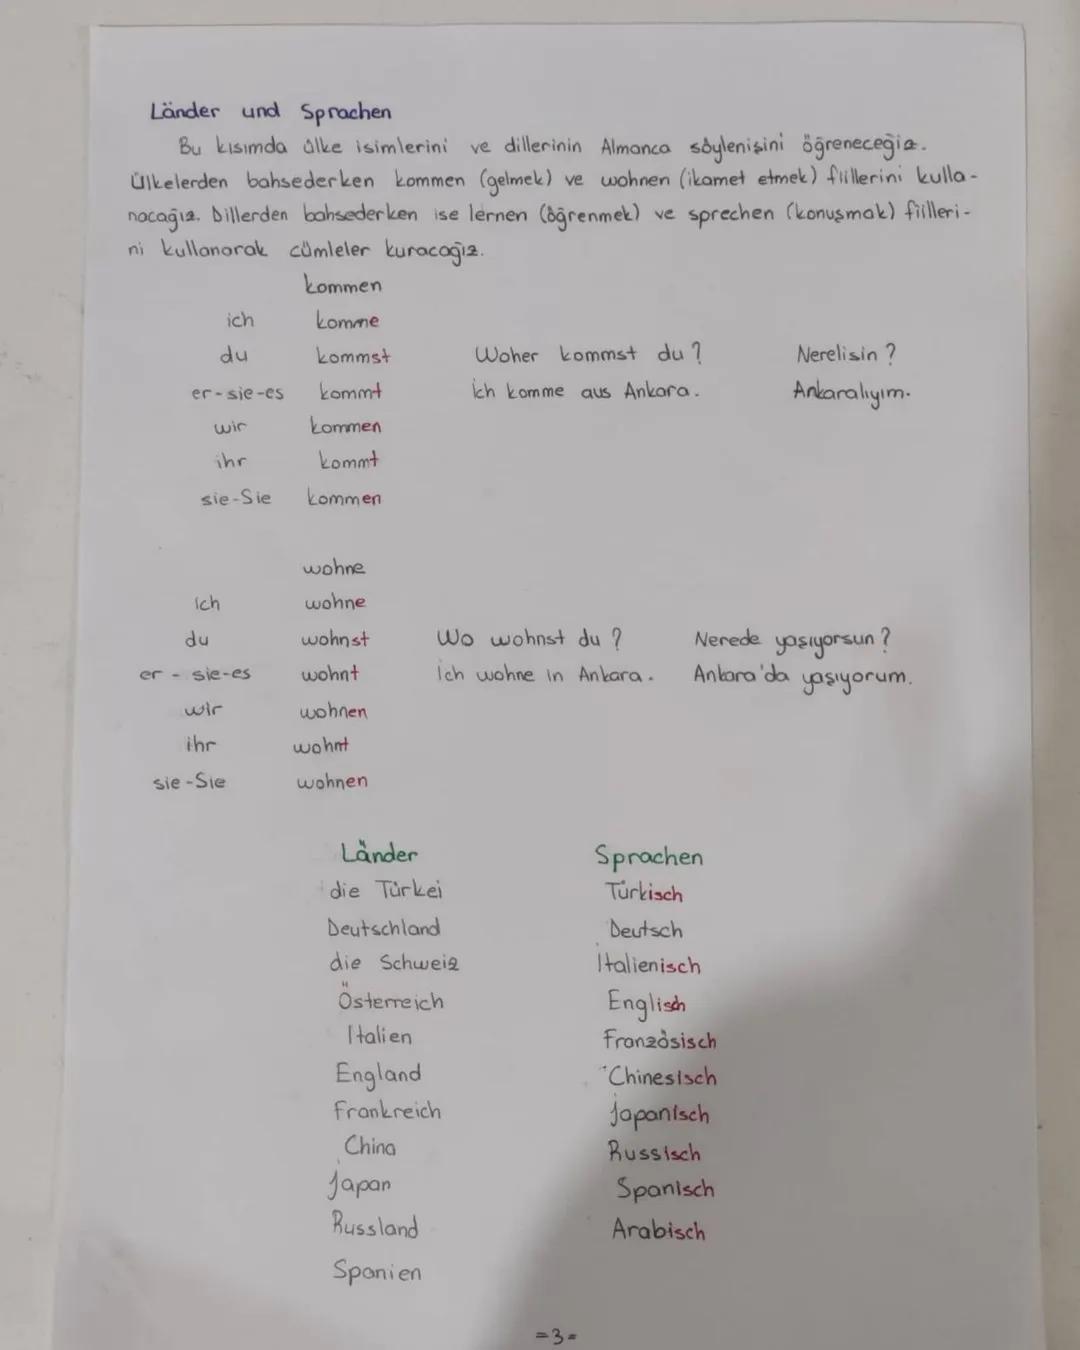 Länder und Sprachen
Bu kısımda ülke isimlerini ve dillerinin Almanca söylenişini öğreneceğiz.
Ülkelerden bahsederken kommen (gelmek) ve wohnen (ikamet etmek) fiillerini kulla-
nacağız. Dillerden bahsederken ise lernen (öğrenmek) ve sprechen (konuşmak) fiilleri-
ni kullanarak cümleler kuracağız.
kommen
ich komme
du kommst Woher kommst du? Nerelisin?
er-sie-es kommt Ich komme aus Ankara. Ankaralıyım.
wir kommen
ihr kommt
sie-Sie kommen
wohne
ich wohne
du wohnst Wo wohnst du? Nerede yaşıyorsun?
er - sie-es wohnt Ich wohne in Ankara. Ankara'da yaşıyorum.
wir wohnen
ihr wohnt
sie-Sie wohnen
Länder Sprachen
die Türkei Türkisch
Deutschland Deutsch
die Schweiz Italienisch
Österreich Englisch
Italien Französisch
England Chinesisch
Frankreich Japanisch
China Russisch
Japan Spanisch
Russland Arabisch
Spanien
=3=